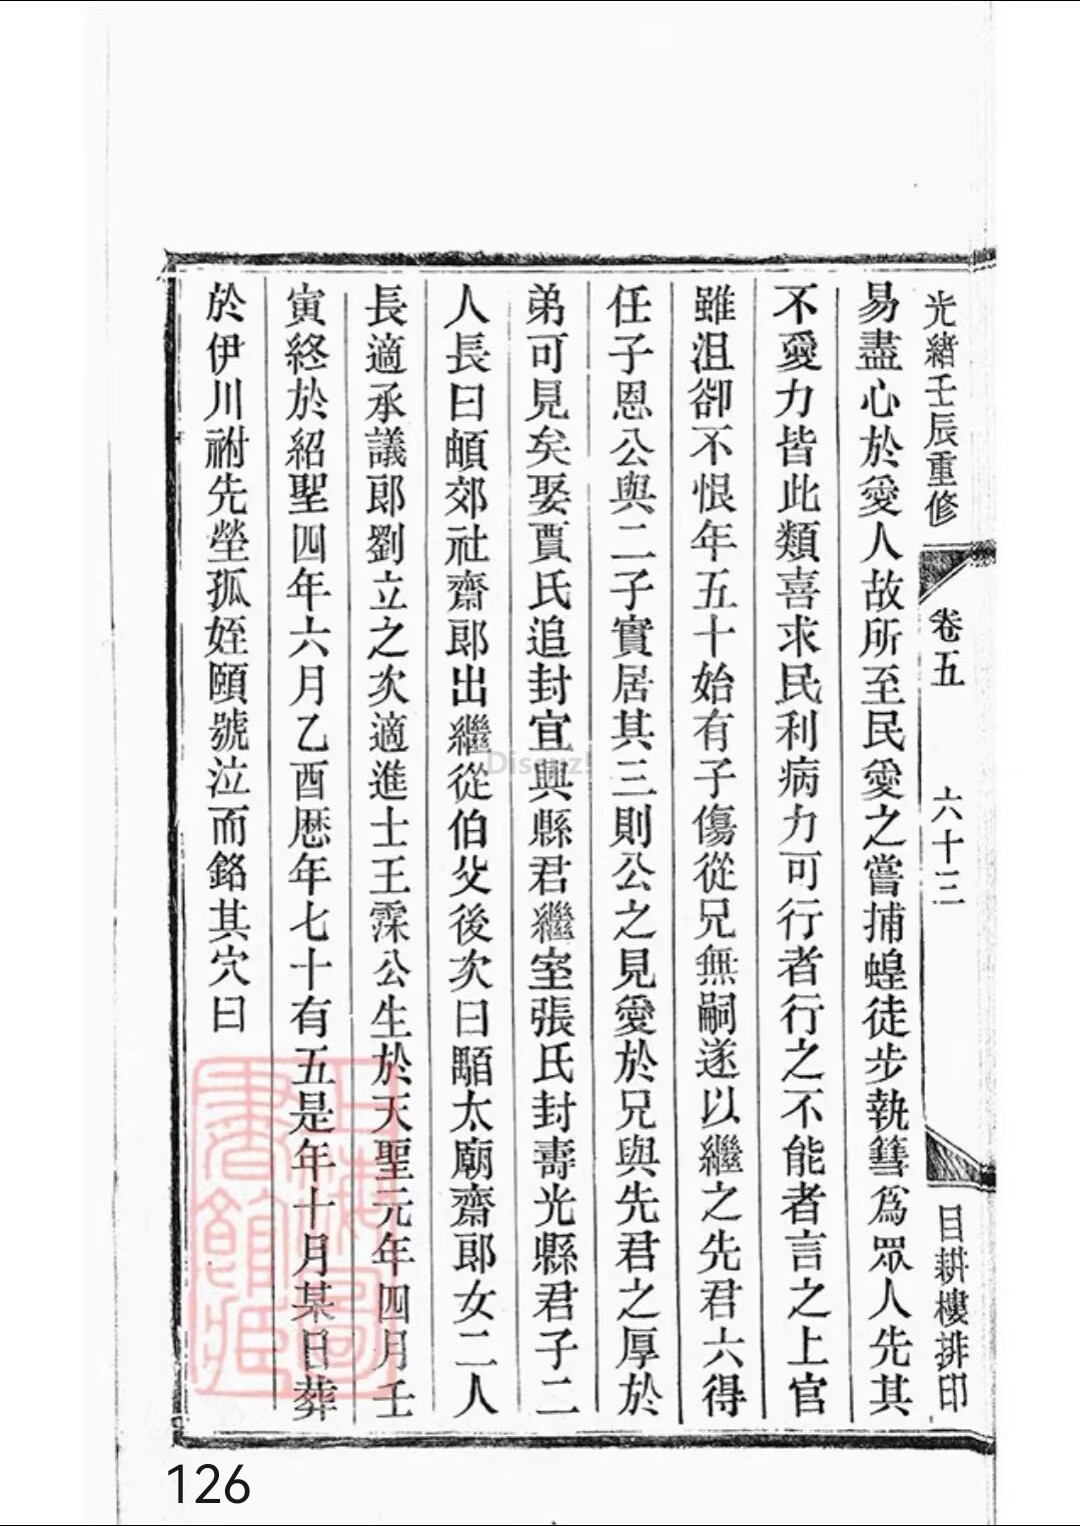 光緒壬辰重修
卷五
六十三
目耕樓排印
易盡心於愛人故所至民愛之嘗捕蝗徒步執篲爲眾人先其
不愛力皆此類喜求民利病力可行者行之不能者言之上官
雖沮卻不恨年五十始有子傷從兄無嗣遂以繼之先君六得
任子恩公與二子實居其三則公之見愛於兄與先君之厚於
弟可見矣娶賈氏追封宜興縣君繼室張氏封壽光縣君子二
人長曰頔郊社齋郎出繼從伯父後次曰顒太廟齋郎女二人
長適承議郎劉立之次適進士王霂公生於天聖元年四月壬
寅終於紹聖四年六月乙酉歷年七十有五是年十月某日葬
於伊川祔先塋孤姪頤號泣而銘其穴曰
上海圖書館藏
Discuz!
126